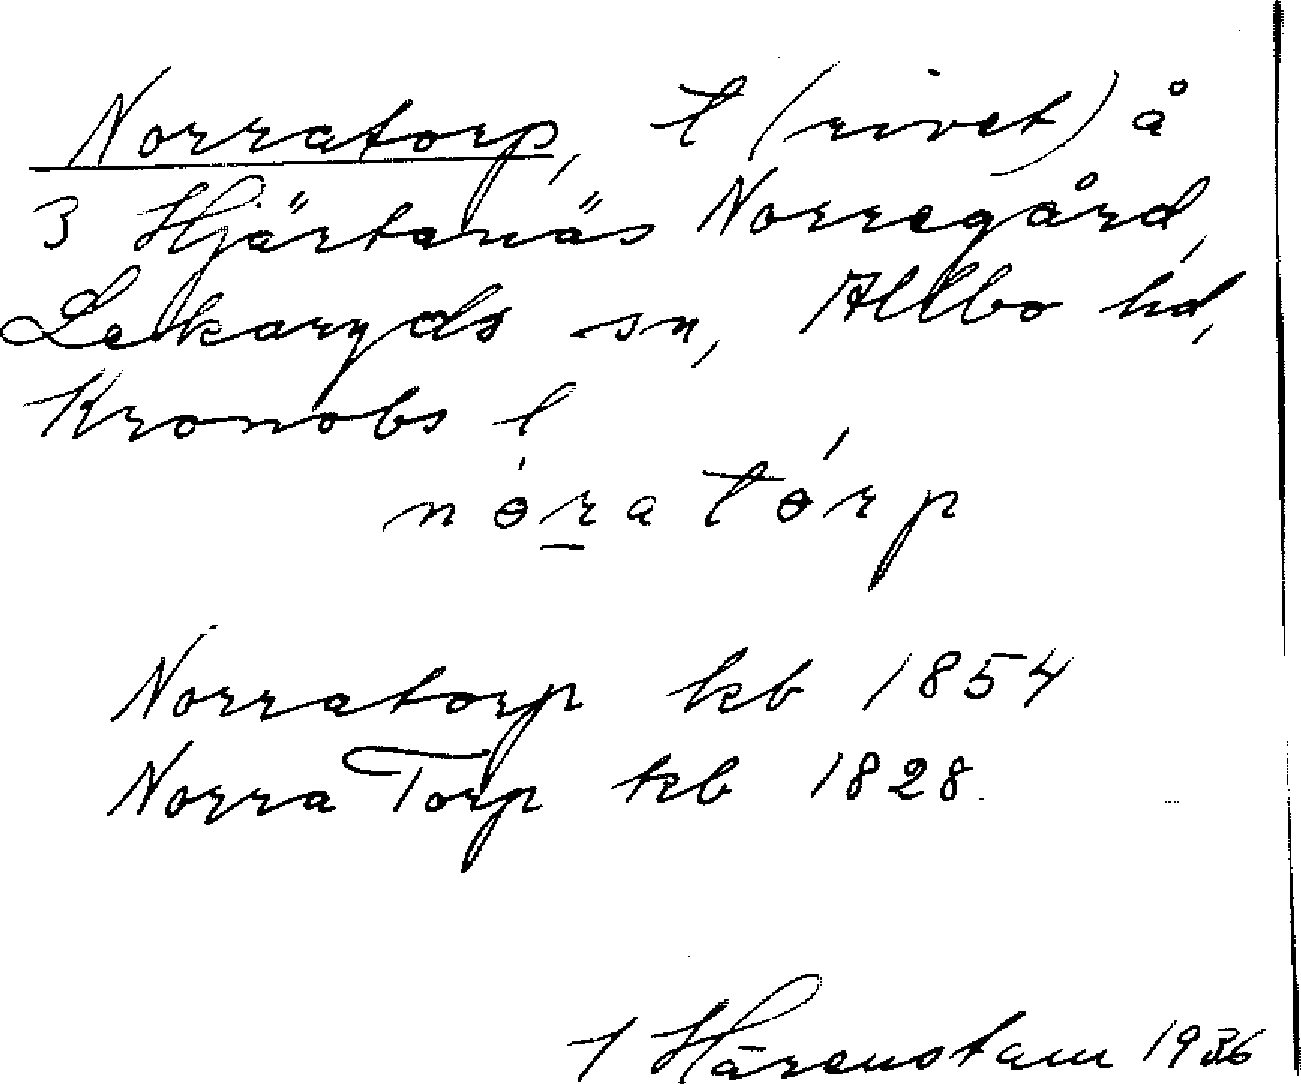 Norratorp, t (rivet) å
3 Hjärtanäs Norregård,
Lekaryds sn, Allbo hd,
Kronobs l
nóratórp
Norratorp kb 1854
Norra Torp kb 1828.
Härenstam 1936